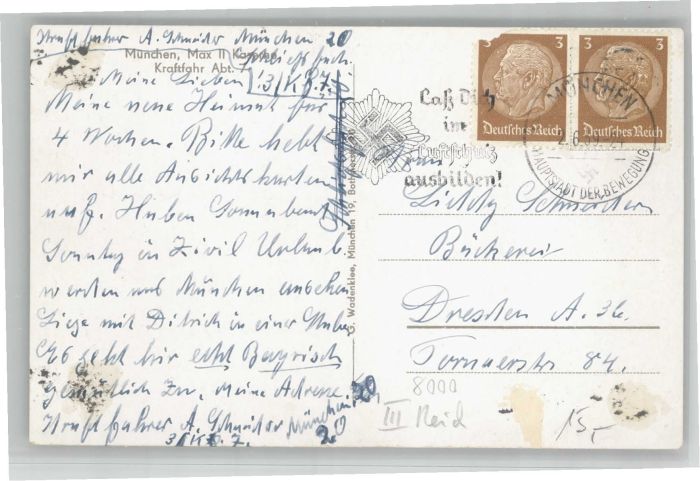 Kraftfahrer A. Schneider München 20
München, Max II Kaserne
Kraftfahr Abt. 7
Schließfach
Meine Lieben 3/K.A.7.
Meine neue Heimat für
4 Wochen. Bitte hebt
mir alle Ansichtskarten
auf. Haben Sonnabend
Sonntag in Zivil Urlaub
werden uns München ansehen
Liege mit Ditrich in einer Stube
Es geht hir echt Bayrisch
gemütlich zu. Meine Adresse.
Kraftfahrer A. Schneider München
3/K.A.7. 20
G. Wadenklee, München 19,
3 3
Deutsches Reich Deutsches Reich
Laß Dich
im
Luftschutz
ausbilden!
MÜNCHEN
HAUPTSTADT DER BEWEGUNG
Frau
Schneider
Bäckerei
Dresden A. 36.
Tornaerstr 84.
8000
III Reich